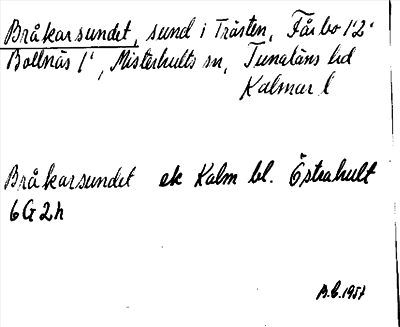 Bråkarsundet, sund i Trästen, Fårbo 1'2'
Bollnäs 1', Misterhults sn, Tunaläns hd
Kalmar l
Bråkarsundet ek Kalm bl. Östrahult
6G2h
B.C. 1957